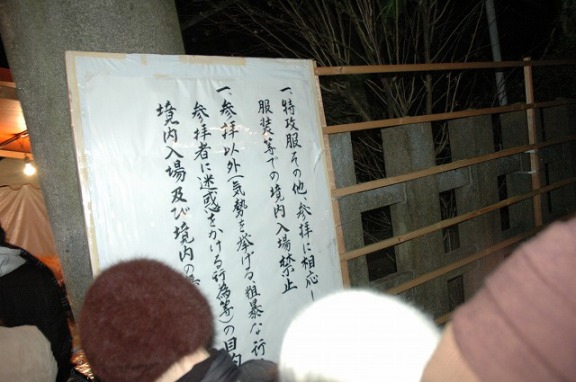 一、特攻服その他、参拝に相応し
服装等での境内入場禁止
一、参拝以外(気勢を挙げる、粗暴な行
参拝者に迷惑をかける行為等)の目的
境内入場及び境内の